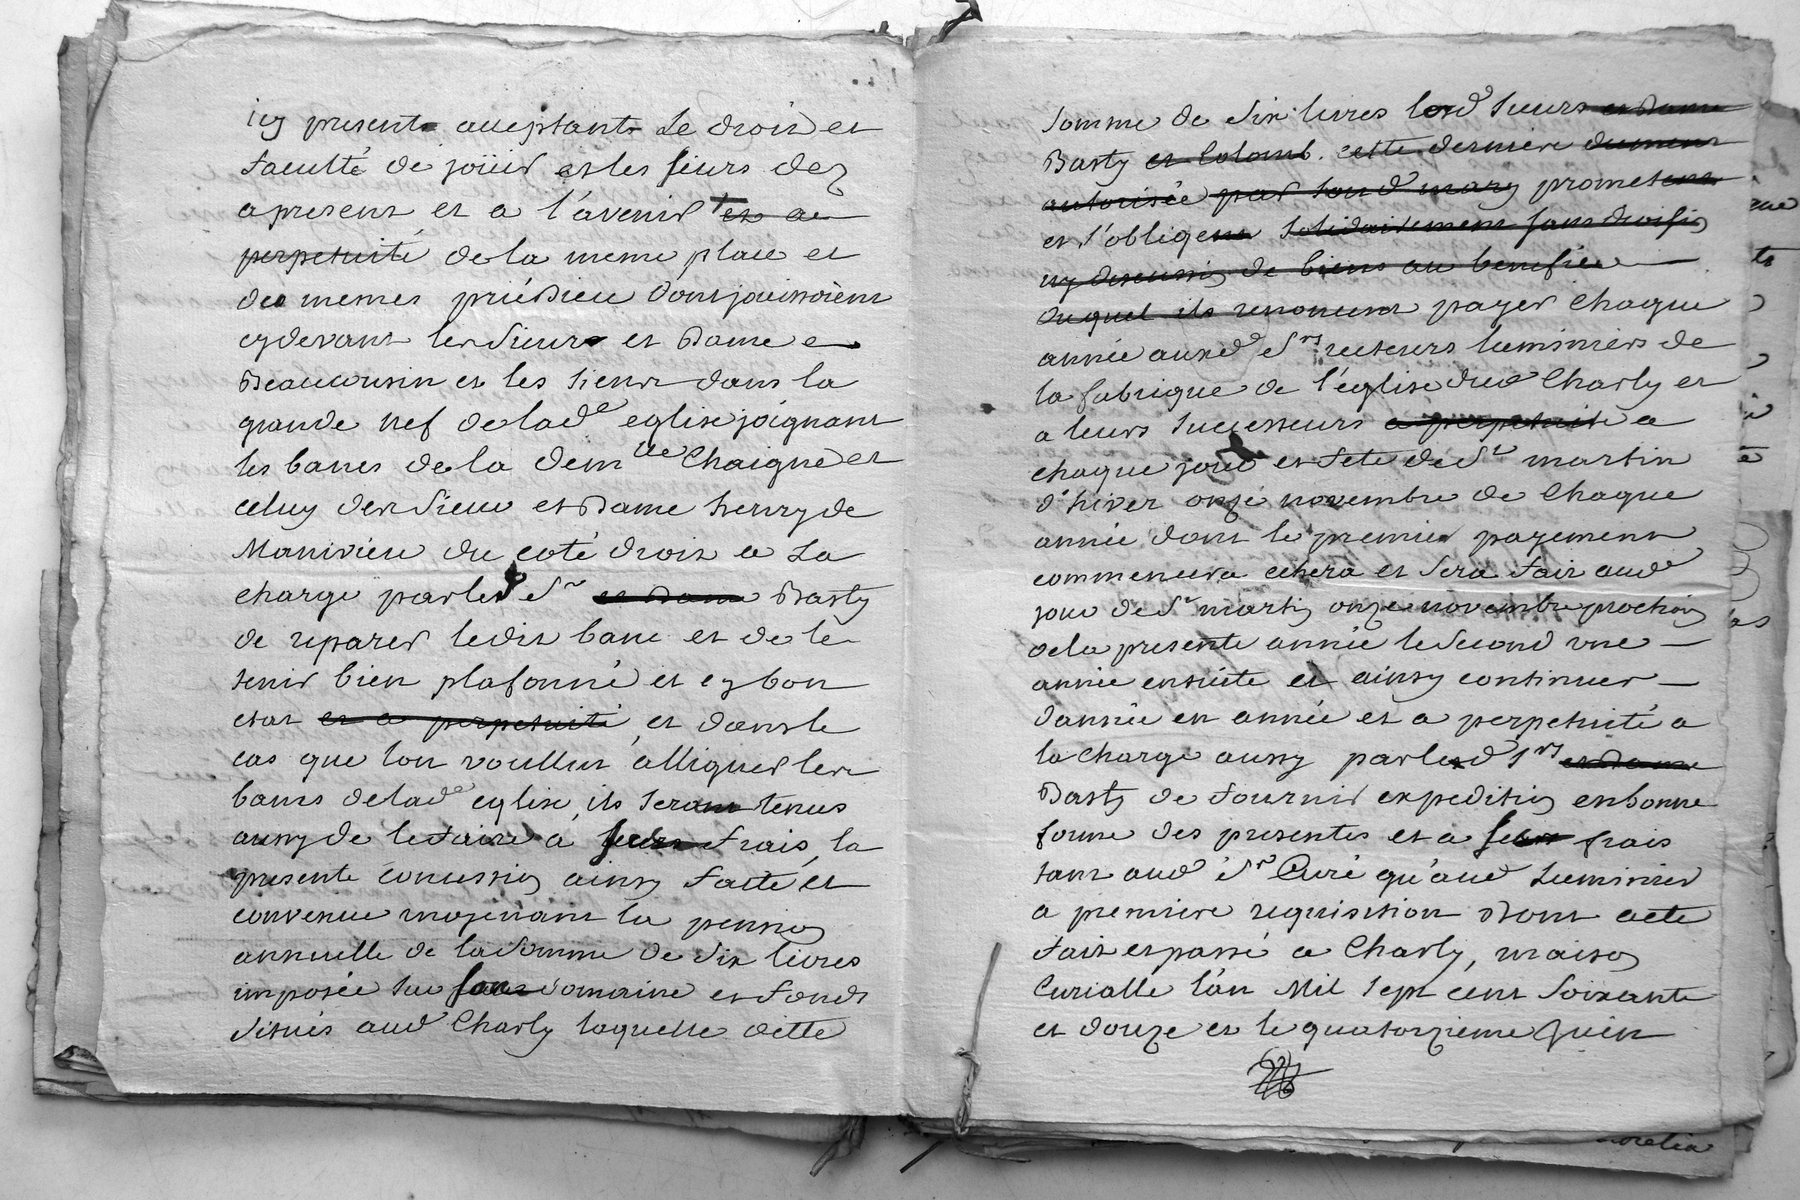 icy present acceptant Le droit et
faculté de joüir et les siens dez
apresent et a l'avenir + et a
perpetuité de la meme place et
des memes priédieu dont jouissoient
cydevant les Sieur et Dame
Beaucousin et les siens dans la
grande nef de lad.e eglise joignant
les bancs de la dem.lle Chaigne et
celuy des Sieur et Dame henry de
Manivieu du coté droit a La
charge par led S.r et Dame Basty
de reparer ledit banc et de le
tenir bien plafonné et ey bon
etat et a perpetuité, et dans le
cas que lon voullut alligner les
bancs de lad.e eglise, ils seront tenus
aussy de le faire a leurs frais, la
presente concession ainsy faite et
convenue moyenant la pension
annuelle de la somme de six livres
imposée sur leurs domaine et fonds
situés aud Charly laquelle ditte
somme de six livres lesd sieurs et Dame
Basty et Colomb. cette derniere dument
autorisée par sond mary prometent
et s'obligent solidairement sans division
ny discussion de biens au benefice
duquel ils renoncent payer chaque
année auxd S.rs recteurs luminiers de
la fabrique de l'église dud Charly et
a leurs successeurs a perpetuité a
chaque jour et fete de S.t martin
d'hiver onze novembre de chaque
année dont le premier payement
commencera echera et sera fait aud
jour de S.t martin onze novembre prochain
de la presente année le second une
année ensuite et ainsy continuer
dannée en année et a perpetuité a
la charge aussy par led S.rs et Dame
Basty de fournir expedition en bonne
forme des presentes et a leurs frais
tant aud S.r Curé qu'aud Luminier
a premiere requisition Dont acte
fait et passé a Charly, maison
Curialle l'an Mil sept cent soixante
et douze et le quatorzieme juin